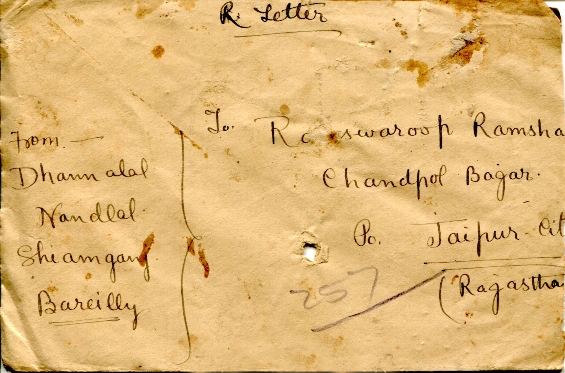 R Letter
From —
Dhannalal
Nandlal
Shiamganj
Bareilly
To. swaroop Ramsha
Chandpol Bagar.
Po. Jaipur Cit
(Rajastha
257